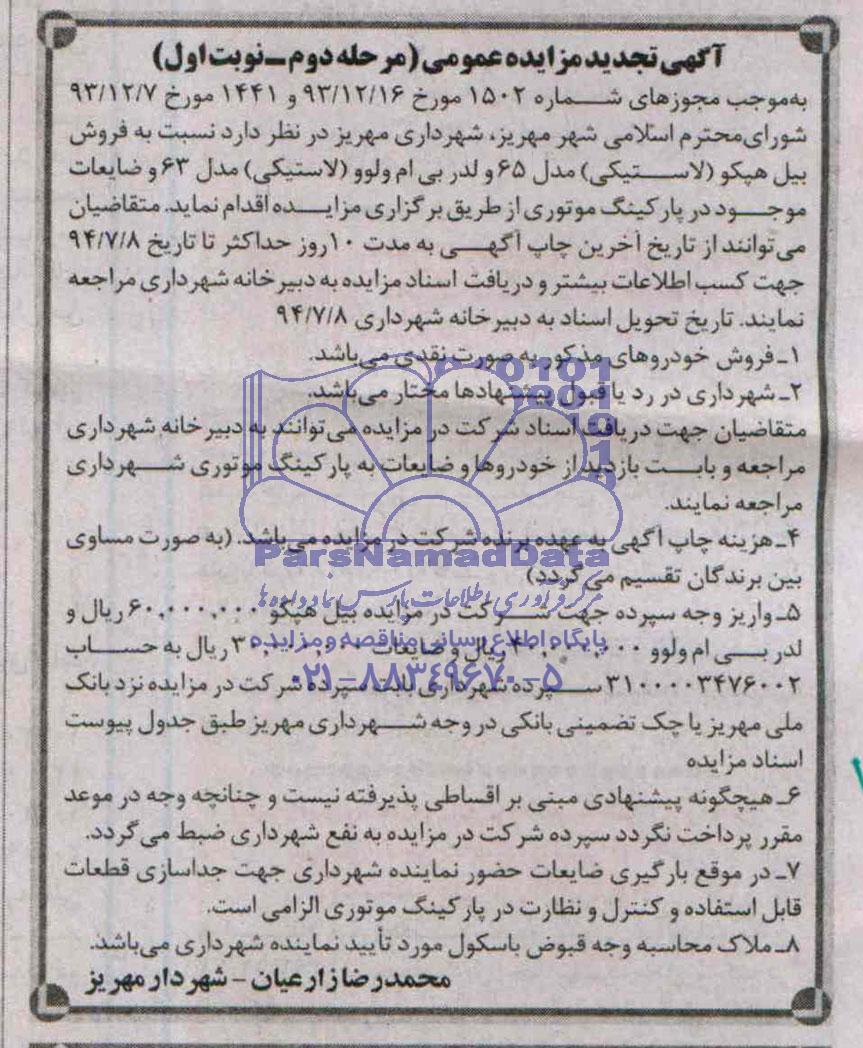 آگهی تجدید مزایده عمومی (مرحله دوم ـ نوبت اول)
به‌موجب مجوزهای شماره ۱۵۰۲ مورخ ۹۳/۱۲/۱۶ و ۱۴۴۱ مورخ ۹۳/۱۲/۷
شورای‌محترم اسلامی شهر مهریز، شهرداری مهریز در نظر دارد نسبت به فروش
بیل هپکو (لاستیکی) مدل ۶۵ و لدر بی ام ولوو (لاستیکی) مدل ۶۳ و ضایعات
موجود در پارکینگ موتوری از طریق برگزاری مزایده اقدام نماید. متقاضیان
می‌توانند از تاریخ آخرین چاپ آگهی به مدت ۱۰ روز حداکثر تا تاریخ ۹۴/۷/۸
جهت کسب اطلاعات بیشتر و دریافت اسناد مزایده به دبیرخانه شهرداری مراجعه
نمایند. تاریخ تحویل اسناد به دبیرخانه شهرداری ۹۴/۷/۸
۱ـ فروش خودروهای مذکور به صورت نقدی می‌باشد.
۲ـ شهرداری در رد یا قبول پیشنهادها مختار می‌باشد.
متقاضیان جهت دریافت اسناد شرکت در مزایده می‌توانند به دبیرخانه شهرداری
مراجعه و بابت بازدید از خودروها و ضایعات به پارکینگ موتوری شهرداری
مراجعه نمایند.
۴ـ هزینه چاپ آگهی به عهده برنده شرکت در مزایده می‌باشد. (به صورت مساوی
ParsNamadData
بین برندگان تقسیم می‌گردد)
مرکز فرآوری اطلاعات پارس نماد داده‌ها
۵ـ واریز وجه سپرده جهت شرکت در مزایده بیل هپکو ۶۰,۰۰۰,۰۰۰ ریال و
پایگاه اطلاع رسانی مناقصه و مزایده
لدر بی ام ولوو ریال و ضایعات ریال به حساب
۰۲۱-۸۸۳۴۹۶۷۰-۵
۳۱۰۰۰۰۳۴۷۶۰۰۲ سپرده شهرداری بابت سپرده شرکت در مزایده نزد بانک
ملی مهریز یا چک تضمینی بانکی در وجه شهرداری مهریز طبق جدول پیوست
اسناد مزایده
۶ـ هیچگونه پیشنهادی مبنی بر اقساطی پذیرفته نیست و چنانچه وجه در موعد
مقرر پرداخت نگردد سپرده شرکت در مزایده به نفع شهرداری ضبط می‌گردد.
۷ـ در موقع بارگیری ضایعات حضور نماینده شهرداری جهت جداسازی قطعات
قابل استفاده و کنترل و نظارت در پارکینگ موتوری الزامی است.
۸ـ ملاک محاسبه وجه قبوض باسکول مورد تأیید نماینده شهرداری می‌باشد.
محمدرضا زارعیان - شهردار مهریز